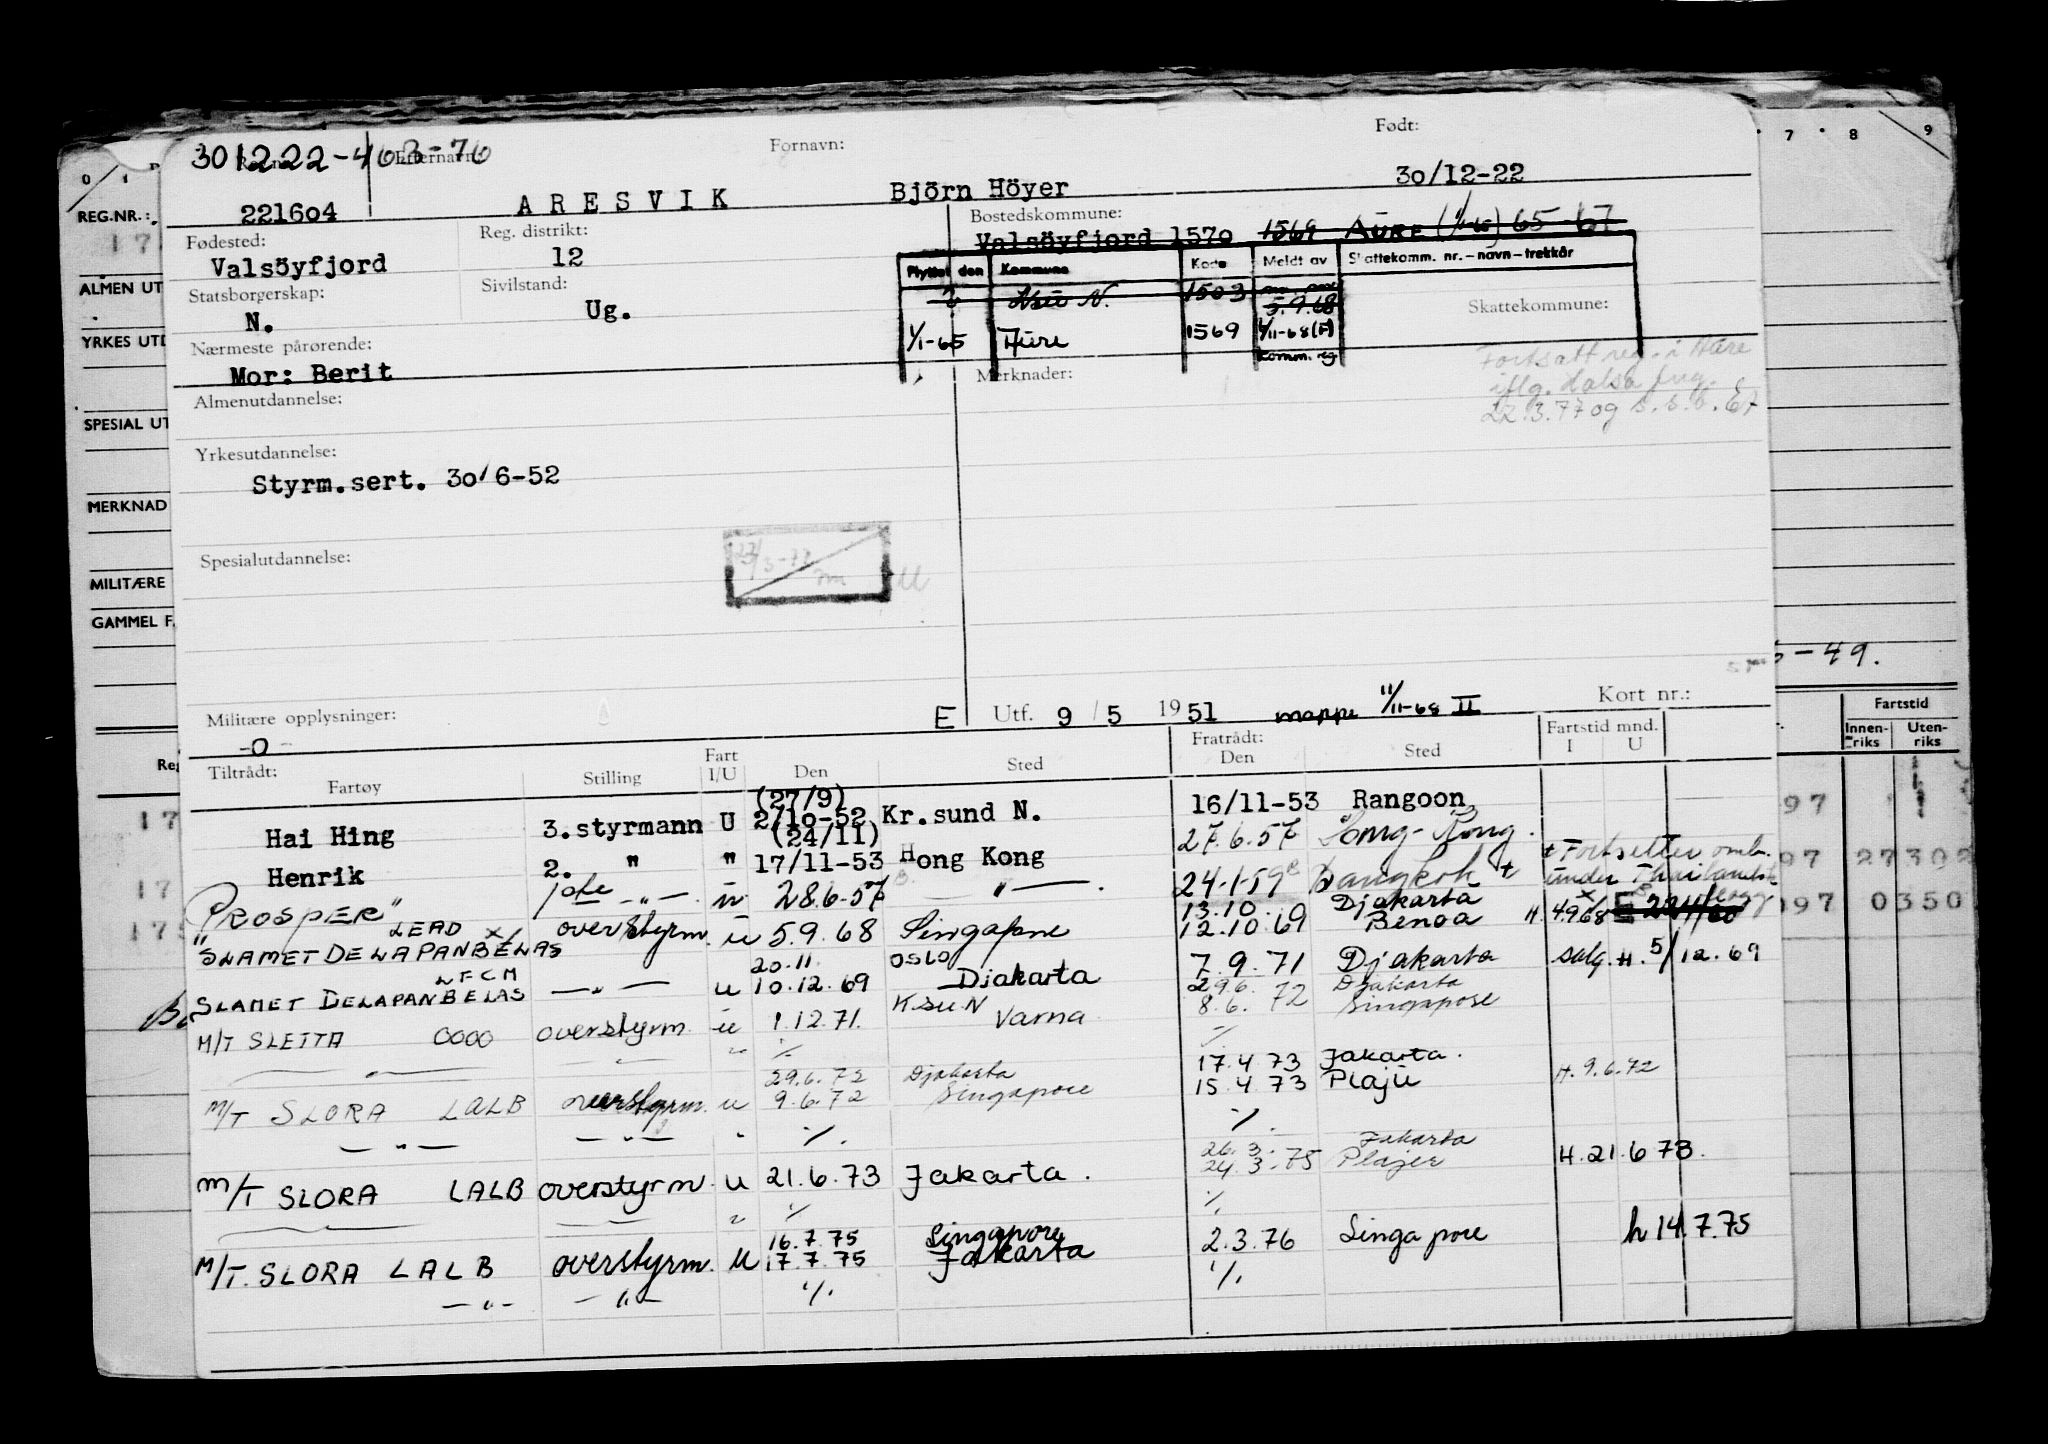 301222-403-70
Reg.nr. Efternavn: Fornavn: Født:
221604 ARESVIK Björn Höyer 30/12-22
Fødested: Reg. distrikt: Bostedskommune:
Valsöyfjord 12 Valsöyfjord 1570 1569 AURE (1/1-65) 65-67
Flyttet den Kommune Kode Meldt av Skattekomm. nr.-navn-trekkår
Statsborgerskap: Sivilstand: Skattekommune:
N. Ug.
1503 5.9.68
1/1-65 Aure 1569 1/11-68(F)
Komm. reg
Nærmeste pårørende:
Mor: Berit
Merknader:
Fortsatt reg. i Aure
iflg. Halsa
22.3.77 og s.s.b. 67
Almenutdannelse:
Yrkesutdannelse:
Styrm.sert. 30/6-52
Spesialutdannelse:
Militære opplysninger: E Utf. 9/5 1951 mappe 11/11-68 II Kort nr.:
-0-
Tiltrådt: Fratrådt: Fartstid mnd.
Fartøy Stilling Fart I/U Den Sted Den Sted I U
Hai Hing 3.styrmann U (27/9) 2/10-52 Kr.sund N. 16/11-53 Rangoon
Henrik 2. " " (24/11) 17/11-53 Hong Kong 27.6.57 Hong-Kong.
"PROSPER" 1ste -"- u 28.6.57 -"- 24.1.59 Bangkok + + Fortsetter
under Thailandsk flagg
"SLAMET DELAPANBELAS LEAD x/ overstyrm. u 5.9.68 Singapore 13.10 12.10.69 Djakarta Benoa H. 4.9.68
SLAMET DELAPANBELAS LFCM -"- u 20.11. 10.12.69 OSLO Djakarta 7.9.71 Djakarta salg. H. 5/12.69
M/T SLETTA OOOO overstyrm. u 1.12.71. K.SU.N Varna 29.6. 8.6.72 Djakarta Singapore
-"- -"- " ./. ./.
M/T SLORA LALB overstyrm. u 29.6.72 9.6.72 Djakarta Singapore 17.4.73 15.4.73 Jakarta. Plaju H. 9.6.72
-"- -"- " ./. ./.
M/T SLORA LALB overstyrm. u 21.6.73 Jakarta. 26.3. 24.3.75 Jakarta Plajer H. 21.6.73.
" ./. ./.
M/T. SLORA LALB overstyrm. U 16.7.75 17.7.75 Singapore Jakarta 2.3.76 Singapore h 14.7.75
-"- -"- ./. ./.
0 1 7 8 9
REG.NR.:
ALMEN UT
YRKES UTD
SPECIAL UT
MERKNAD
MILITÆRE
GAMMEL F.
-49.
Fartstid
Innenriks Utenriks
97
97 27302
097 0350